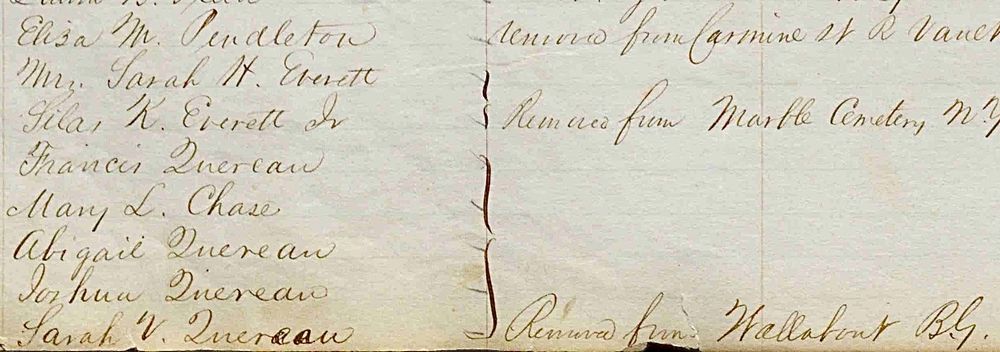 Eliza M. Pendleton removed from Carmine St R Vault
Mrs. Sarah H. Everett
Silas K. Everett Jr Removed from Marble Cemetery N.Y
Francis Quereau
Mary L. Chase
Abigail Quereau
Joshua Quereau
Sarah V. Quereau Removed from Wallabout B.G.